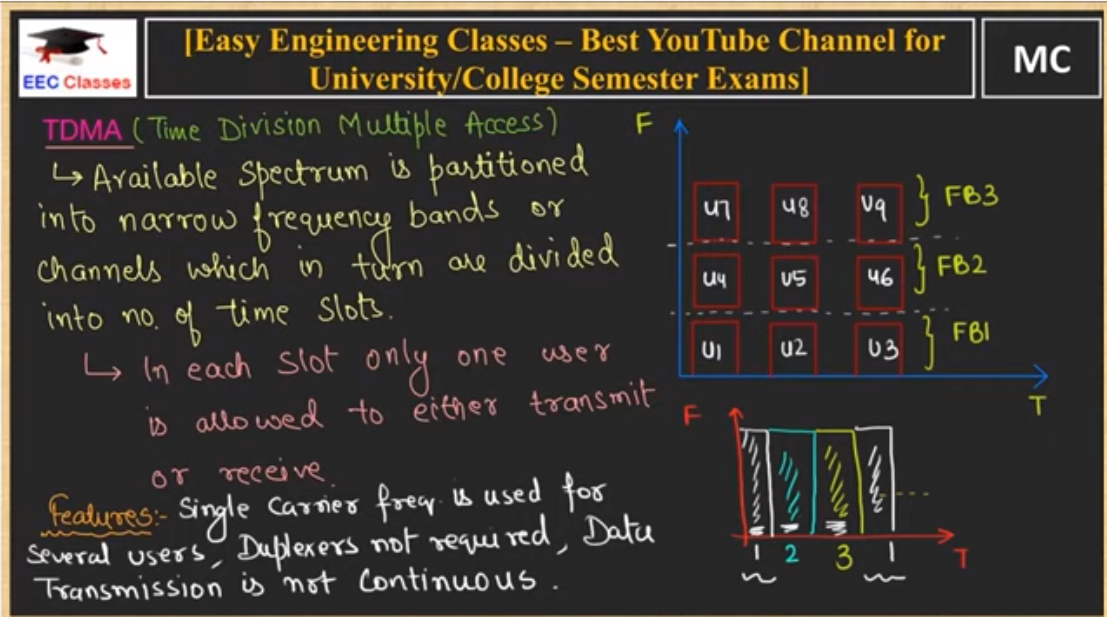 EEC Classes
[Easy Engineering Classes – Best YouTube Channel for
University/College Semester Exams]
MC
TDMA (Time Division Multiple Access)
↳ Available Spectrum is partitioned
into narrow frequency bands or
channels which in turn are divided
into no. of time slots.
↳ In each slot only one user
is allowed to either transmit
or receive.
Features:- Single Carrier freq. is used for
several users, Duplexers not required, Data
Transmission is not Continuous.
F
U7 U8 U9 } FB3
U4 U5 U6 } FB2
U1 U2 U3 } FB1
T
F
1 2 3 1
T